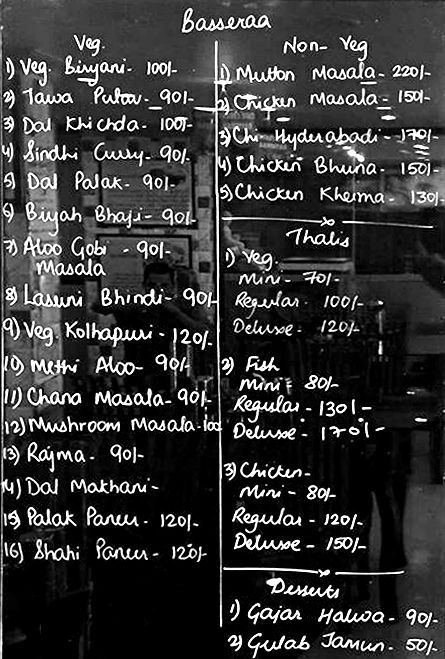 Basseraa
Veg.
1) Veg. Biryani - 100/-
2) Tawa Pulav - 90/-
3) Dal Khichda - 100/-
4) Sindhi Curry - 90/-
5) Dal Palak - 90/-
6) Biyah Bhaji - 90/-
7) Aloo Gobi - 90/-
Masala
8) Lasuni Bhindi - 90/-
9) Veg. Kolhapuri - 120/-
10) Methi Aloo - 90/-
11) Chana Masala - 90/-
12) Mushroom Masala - 100
13) Rajma - 90/-
14) Dal Makhani -
15) Palak Paneer - 120/-
16) Shahi Paneer - 120/-
Non - Veg
1) Mutton Masala - 220/-
2) Chicken Masala - 150/-
3) Chi Hyderabadi - 170/-
4) Chicken Bhuna - 150/-
5) Chicken Kheema - 130/-
Thalis
1) Veg.
Mini - 70/-
Regular - 100/-
Deluxe - 120/-
2) Fish
Mini - 80/-
Regular - 130/-
Deluxe - 170/-
3) Chicken -
Mini - 80/-
Regular - 120/-
Deluxe - 150/-
Desserts
1) Gajar Halwa - 90/-
2) Gulab Jamun - 50/-